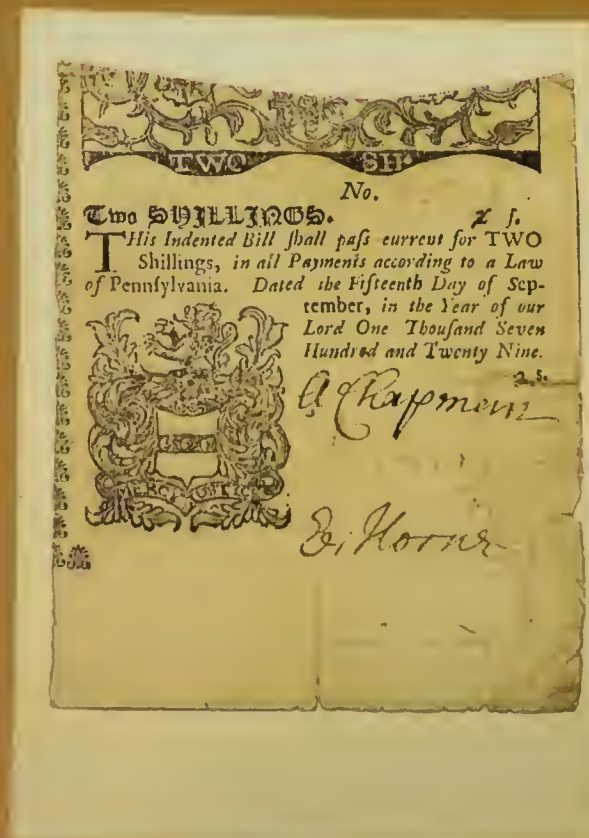 TWO SH.
No.
Two SHILLINGS. 2 ſ.
THis Indented Bill ſhall paſs current for TWO
Shillings, in all Payments according to a Law
of Pennſylvania. Dated the Fifteenth Day of Sep-
tember, in the Year of our
Lord One Thouſand Seven
Hundred and Twenty Nine.
2 s.
A Chapman
MERCY JUSTICE
E. Horne